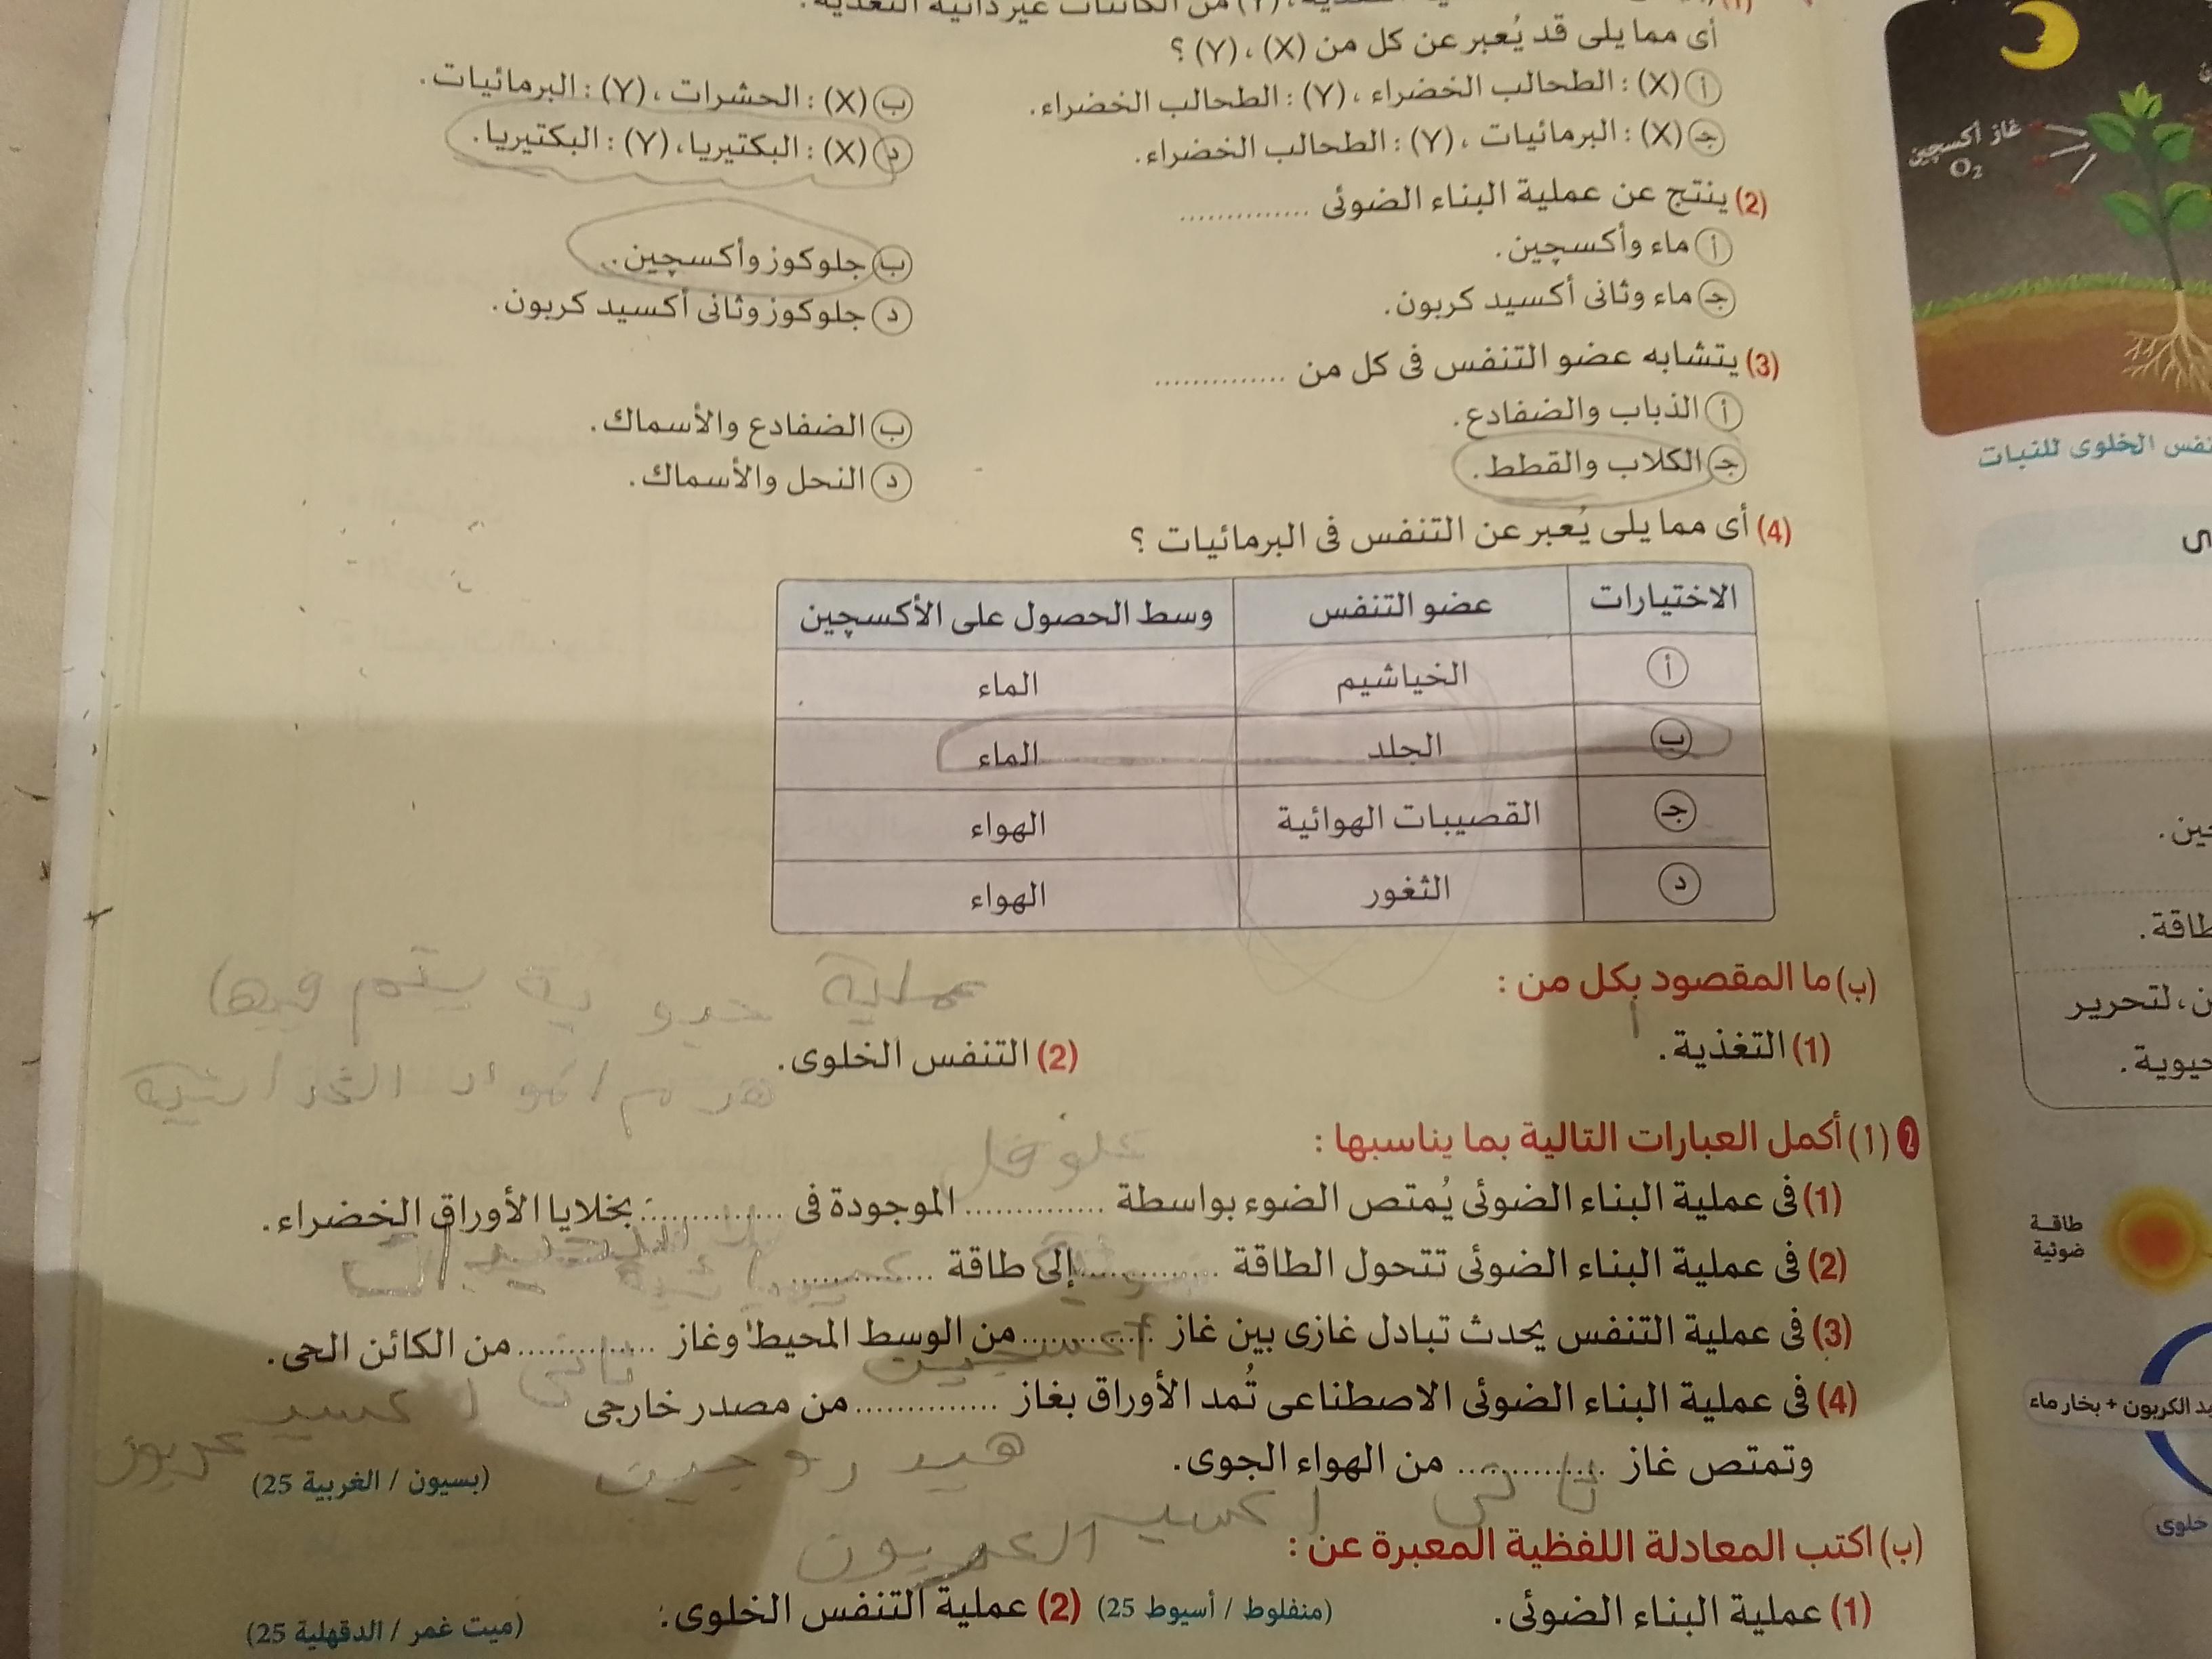 (1) (Y) من الكائنات غير ذاتية التغذية.
أى مما يلى قد يُعبر عن كل من (X) ، (Y) ؟
أ (X) : الطحالب الخضراء ، (Y) : الطحالب الخضراء.
ب (X) : الحشرات ، (Y) : البرمائيات.
جـ (X) : البرمائيات ، (Y) : الطحالب الخضراء.
د (X) : البكتيريا، (Y) : البكتيريا.
(2) ينتج عن عملية البناء الضوئى ..............
أ ماء وأكسچين.
ب جلوكوز وأكسچين.
جـ ماء وثانى أكسيد كربون.
د جلوكوز وثانى أكسيد كربون.
(3) يتشابه عضو التنفس فى كل من ..............
أ الذباب والضفادع.
ب الضفادع والأسماك.
جـ الكلاب والقطط.
د النحل والأسماك.
(4) أى مما يلى يُعبر عن التنفس فى البرمائيات ؟
الاختيارات عضو التنفس وسط الحصول على الأكسچين
أ الخياشيم الماء
ب الجلد الماء
جـ القصيبات الهوائية الهواء
د الثغور الهواء
(ب) ما المقصود بكل من :
عملية حيوية يتم فيها
(1) التغذية.
(2) التنفس الخلوى.
هدم المواد الغذائية
2 (1) أكمل العبارات التالية بما يناسبها :
(1) فى عملية البناء الضوئى يُمتص الضوء بواسطة .............. الموجودة فى .............. بخلايا الأوراق الخضراء.
(2) فى عملية البناء الضوئى تتحول الطاقة .............. إلى طاقة ..............
(3) فى عملية التنفس يحدث تبادل غازى بين غاز .............. من الوسط المحيط وغاز .............. من الكائن الحى.
أكسجين
ثانى اكسيد كربون
(4) فى عملية البناء الضوئى الاصطناعى تُمد الأوراق بغاز .............. من مصدر خارجى
هيدروجين
وتمتص غاز .............. من الهواء الجوى.
(بسيون / الغربية 25)
ثانى اكسيد الكربون
(ب) اكتب المعادلة اللفظية المعبرة عن :
(1) عملية البناء الضوئى. (منفلوط / أسيوط 25)
(2) عملية التنفس الخلوى. (ميت غمر / الدقهلية 25)
غاز أكسچين
O₂
التنفس الخلوى للنبات
طاقة.
لتحرير
طاقة
ضوئية
الكربون + بخار ماء
خلوى